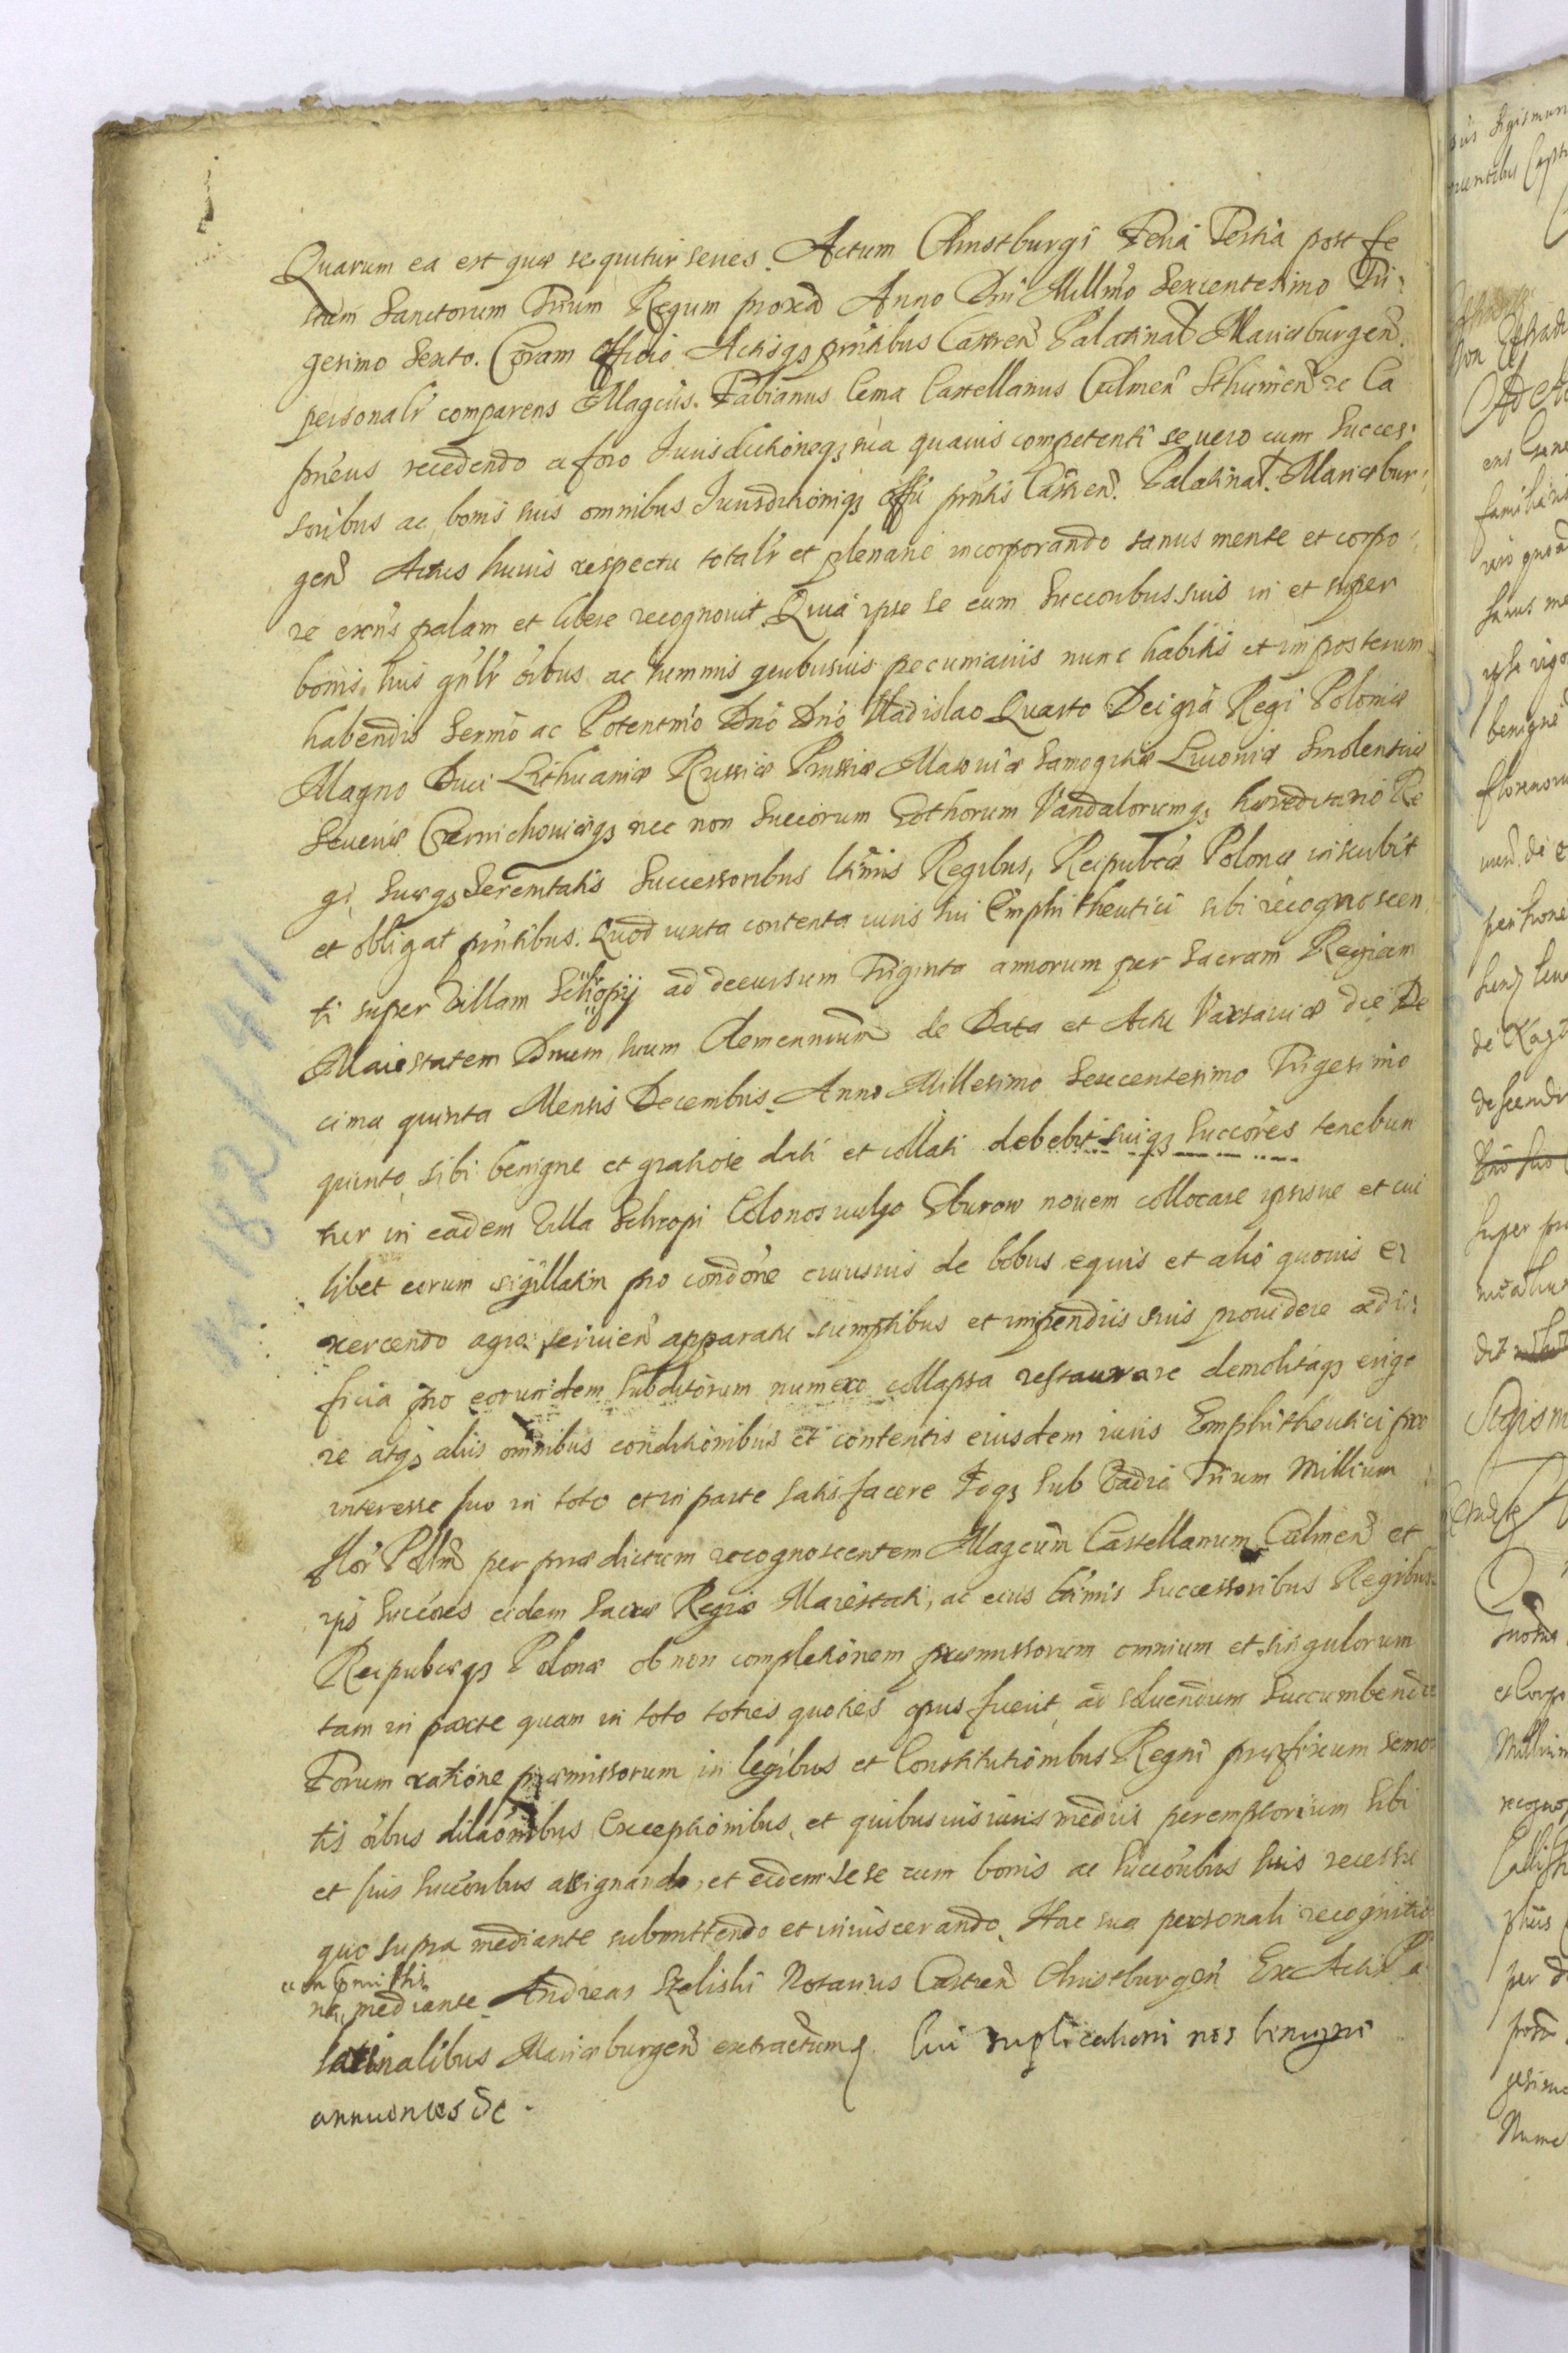 Quarum ea est quæ sequitur series. Actum Christburgi Feria Tertia post fe
stum Sanctorum Trium Regum proxã Anno Dni Millmo Sexcentesimo Tri-
gesimo Sexto. Coram Officio Actisq; pñtibus Castreñ Palatinat Mariæburgeñ.
personalr comparens Magcus. Fabianus Cema Castellanus Culmeñ Sthumeñ &c Ca
pneus recedendo a foro Jurisdictioneq; sua quauis competenti se uero cum Succes-
soribus ac bonis suis omnibus Jurisdictioniq; Offii pñtis Castreñ. Palatinat. Mariæbur-
geñ Actus huius respectu totalr et plenarie incorporando sanus mente et corpo-
re exñs palam et libere recognouit. Quia ipse se cum Succoribus suis in et super
bonis suis gñlr oibus ac summis quibusuis pecuniariis nunc habitis et imposterum
habendis Sermo ac Potentmo Dno Dno Vladislao Quarto Dei grã Regi Poloniæ
Magno Duci Lithuaniæ Russiæ Prussiæ Masouiæ Samogitiæ Liuoniæ Smolensciæ
Seueriæ Czernichouiæq; nec non Suecorum Gothorum Vandalorumq; hæreditario Re
gi, Suæq; Serenitatis Successoribus ltimis Regibus, Reipubcæ Polonæ inscribit
et obligat pñtibus. Quod iuxta contenta iuris sui Emphitheutici sibi recognoscen
ti super Villam Schropÿ ad decursum Triginta annorum per Sacram Regiam
Maiestatem Dnum suum Clemenmum de Data et Actu Varsauiæ die De
cima quinta Mensis Decembris. Anno Millesimo Sexcentesimo Trigesimo
quinto sibi benigne et gratiose dati et collati debebit suiq; Succores tenebun
tur in eadem Villa Schropi Colonos uulgo Gburow nouem collocare ipsisue et cui
libet eorum sigillatim pro condone cuiusuis de bobus equis et alio quouis ex
xercendo agro seruien apparatu sumptibus et impendiis suis prouidere ædi-
ficia pro eorundem Subditorum numero collapsa restaurare demolitaq; erige
re atq; aliis omnibus conditionibus et contentis eiusdem iuris Emphitheutici pro
interesse suo in toto et in parte satisfacere Idq; sub Vadio Trium Millium
flor Pollm per prædictum recognoscentem Magcum Castellanum Culmeñ et
ips Succores eidem Sacræ Regiæ Maiestati, ac eius ltimis Successoribus Regibus
Reipubcæq; Polonæ ob non completionem præmissorum omnium et singulorum
tam in parte quam in toto toties quoties opus fuerit ad soluendum succumbendo
Forum ratione præmissorum in legibus et Constitutionibus Regni præfixum semo
tis oibus dilaonibus Exceptionibus, et quibusuis iuris mediis peremptorium sibi
et suis Succoribus assignando, et eidem sese cum bonis ac Succoribus suis recessu
quo supra mediante submittendo et inuiscerando. Hac sua personali recognitio
ne mediante. Andreas Szeliski Notarius Castreñ Christburgeñ Ex Actis Pa
latinalibus Mariæburgeñ extractum. Cui supplicationi nos benigne
annuentes &c.